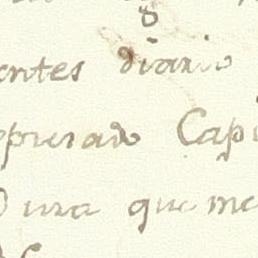 entes diario
epurado Capi
ura que me